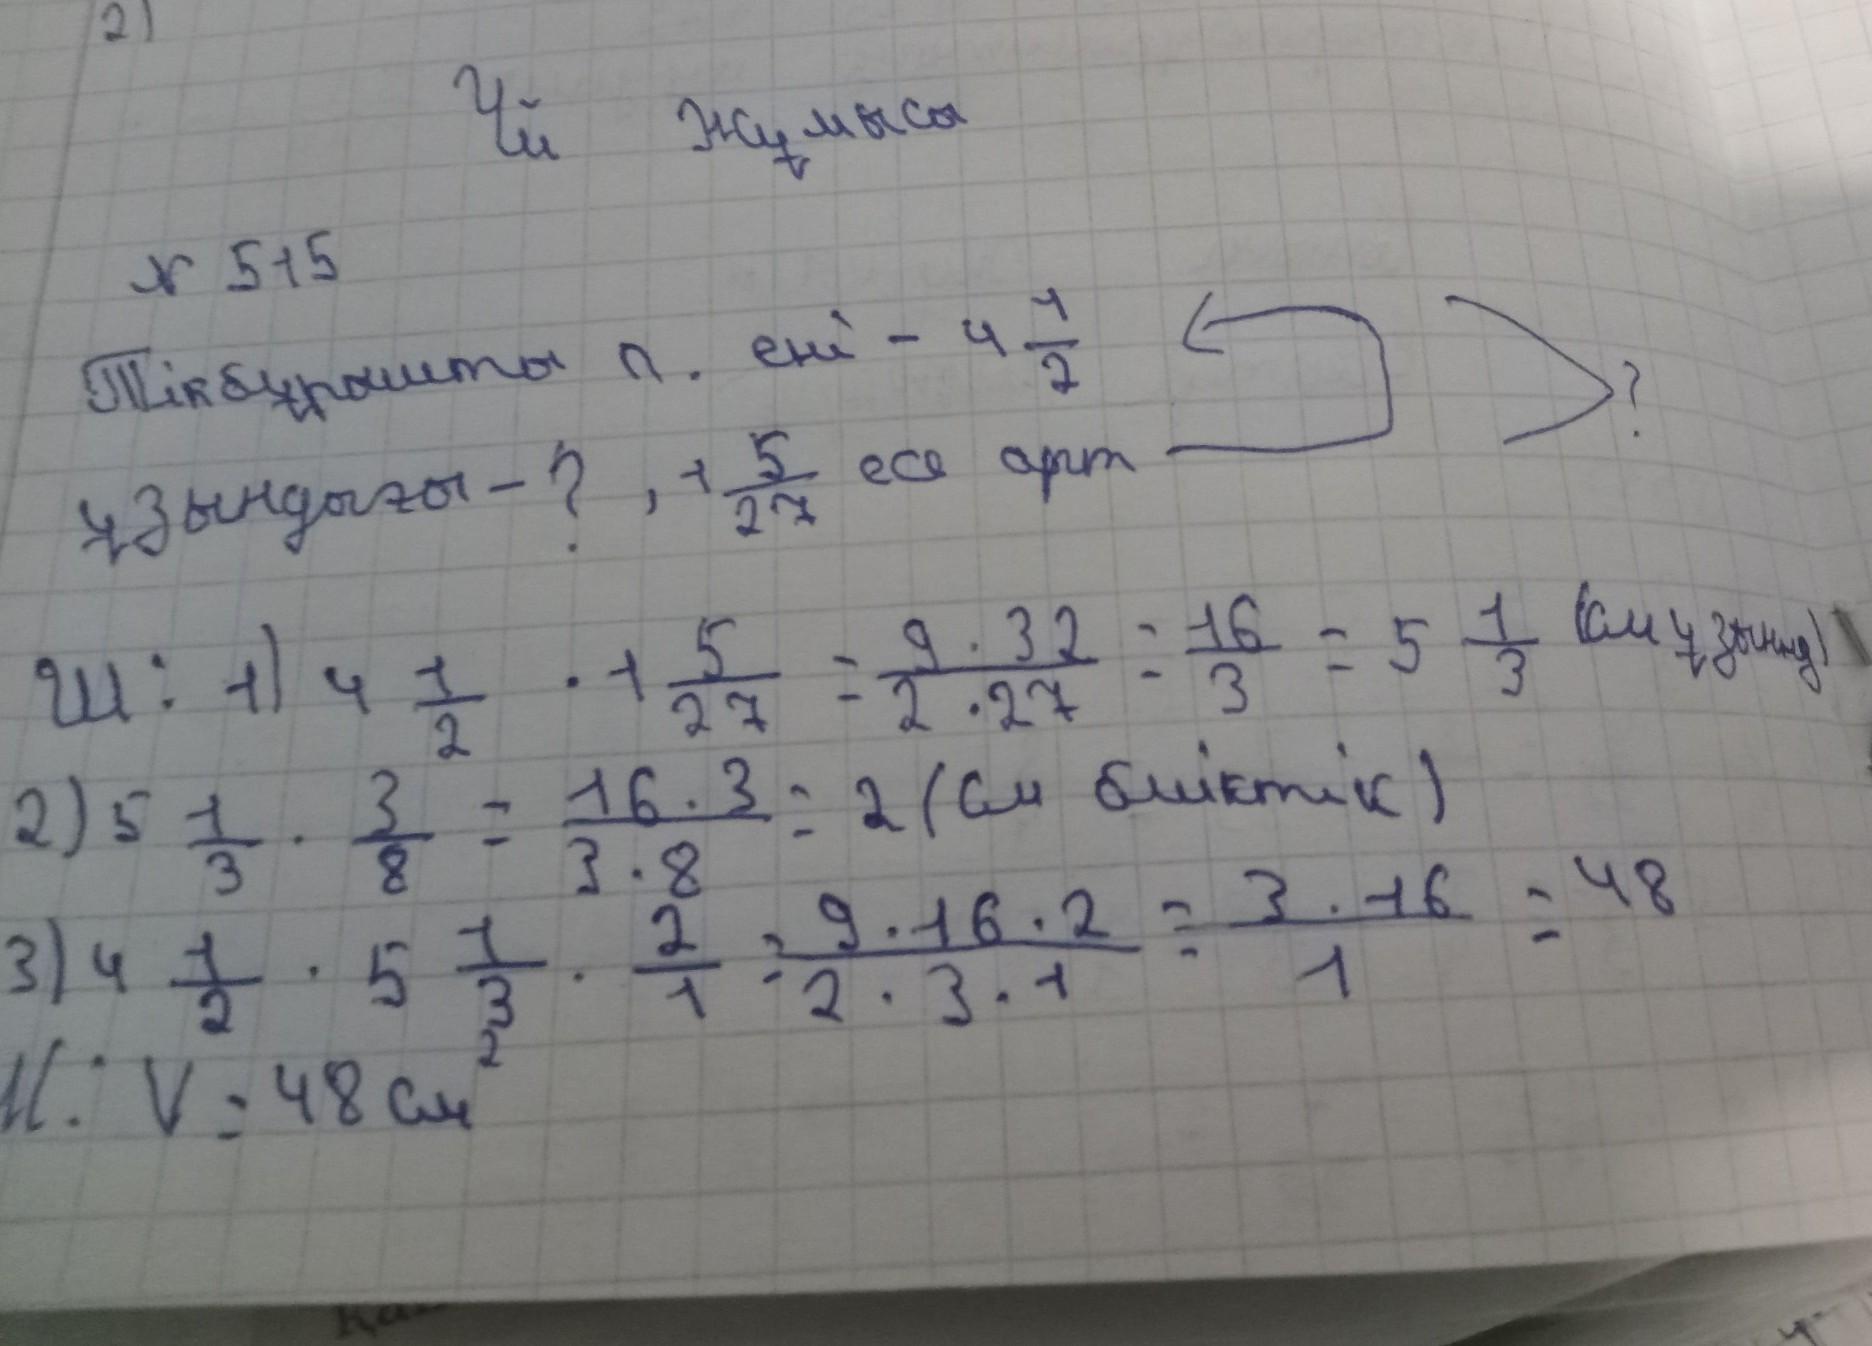 2)
Үй жұмысы
№ 515
Тікбұрышты п. ені - 4 1/2
ұзындығы - ? , 1 5/27 есе арт ?
Ш: 1) 4 1/2 · 1 5/27 = 9 · 32 / 2 · 27 = 16/3 = 5 1/3 (см ұзынд)
2) 5 1/3 · 3/8 = 16 · 3 / 3 · 8 = 2 (см биіктік)
3) 4 1/2 · 5 1/3 · 2/1 = 9 · 16 · 2 / 2 · 3 · 1 = 3 · 16 / 1 = 48
V = 48 см²